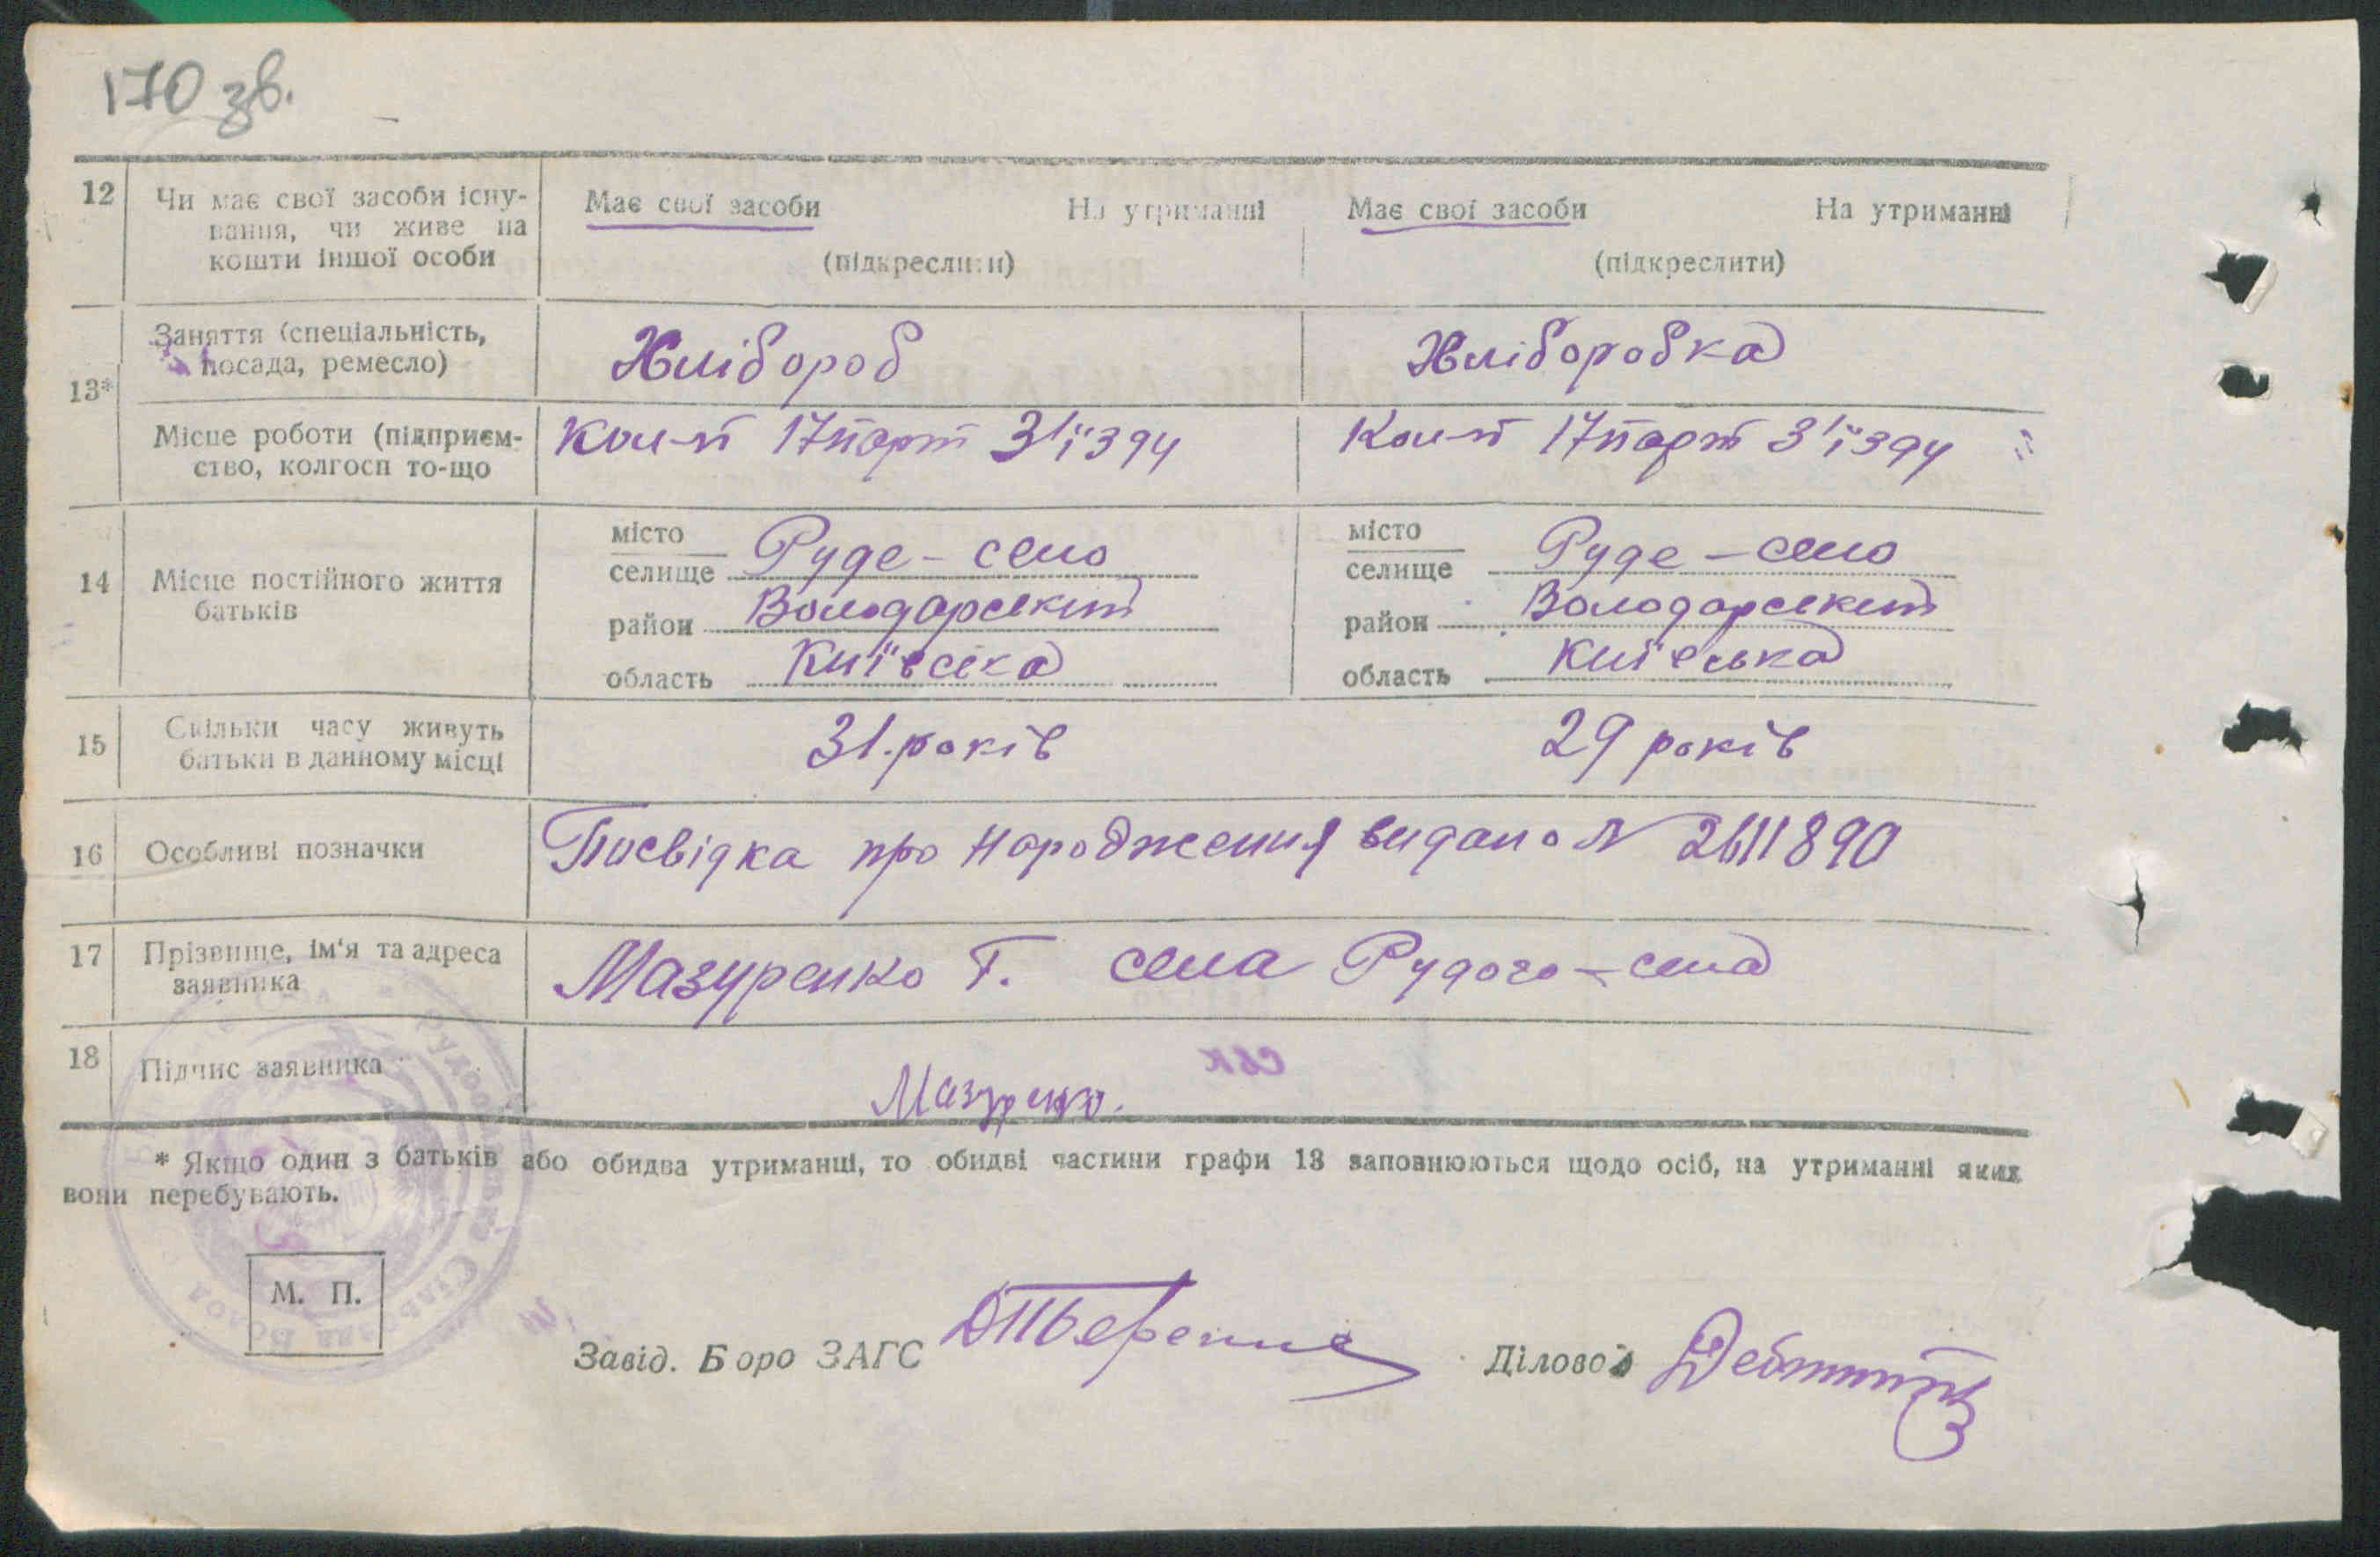 170 зв.
12 Чи має свої засоби існу- Має свої засоби На утриманні Має свої засоби На утриманні
вання, чи живе на
кошти іншої особи (підкреслити) (підкреслити)
13* Заняття (спеціальність, Хлібороб Хліборобка
посада, ремесло)
Місце роботи (підприєм- Кол-п 17 парт З'їзду Кол-п 17 парт З'їзду
ство, колгосп то-що
14 Місце постійного життя батьків
місто селище Руде-село місто селище Руде-село
район Володарський район Володарський
область Київська область Київська
15 Скільки часу живуть 31 років 29 років
батьки в данному місці
16 Особливі позначки Посвідка про народження видано N 2611890
17 Прізвище, ім'я та адреса Мазуренко Т. села Рудого-села
заявника
18 Підпис заявника Мазуренко.
* Якщо один з батьків або обидва утриманці, то обидві частини графи 13 заповнюються щодо осіб, на утриманні яких
вони перебувають.
М. П.
Завід. Бюро ЗАГС Діловод